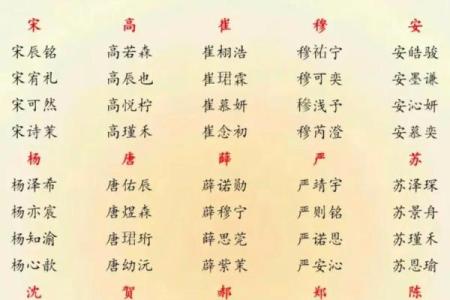 宋 高 崔 穆 安
宋辰铭 高若森 崔栩浩 穆祐宁 安皓骏
宋宥礼 高辰也 崔珺霖 穆可奕 安墨谦
宋可然 高悦柠 崔慕妍 穆浅予 安沁妍
宋诗茉 高瑾禾 崔念初 穆芮澄 安慕奕
杨 唐 薛 严 苏
杨泽希 唐佑辰 薛诺勋 严靖宇 苏泽琛
杨亦宸 唐煜森 薛穆宁 严则铭 苏景舟
杨知渝 唐珺珩 薛思莞 严诺恩 苏瑾禾
杨心歆 唐幼沅 薛紫茉 严安沁 苏恩瑜
沈 贺 郝 郑 陈